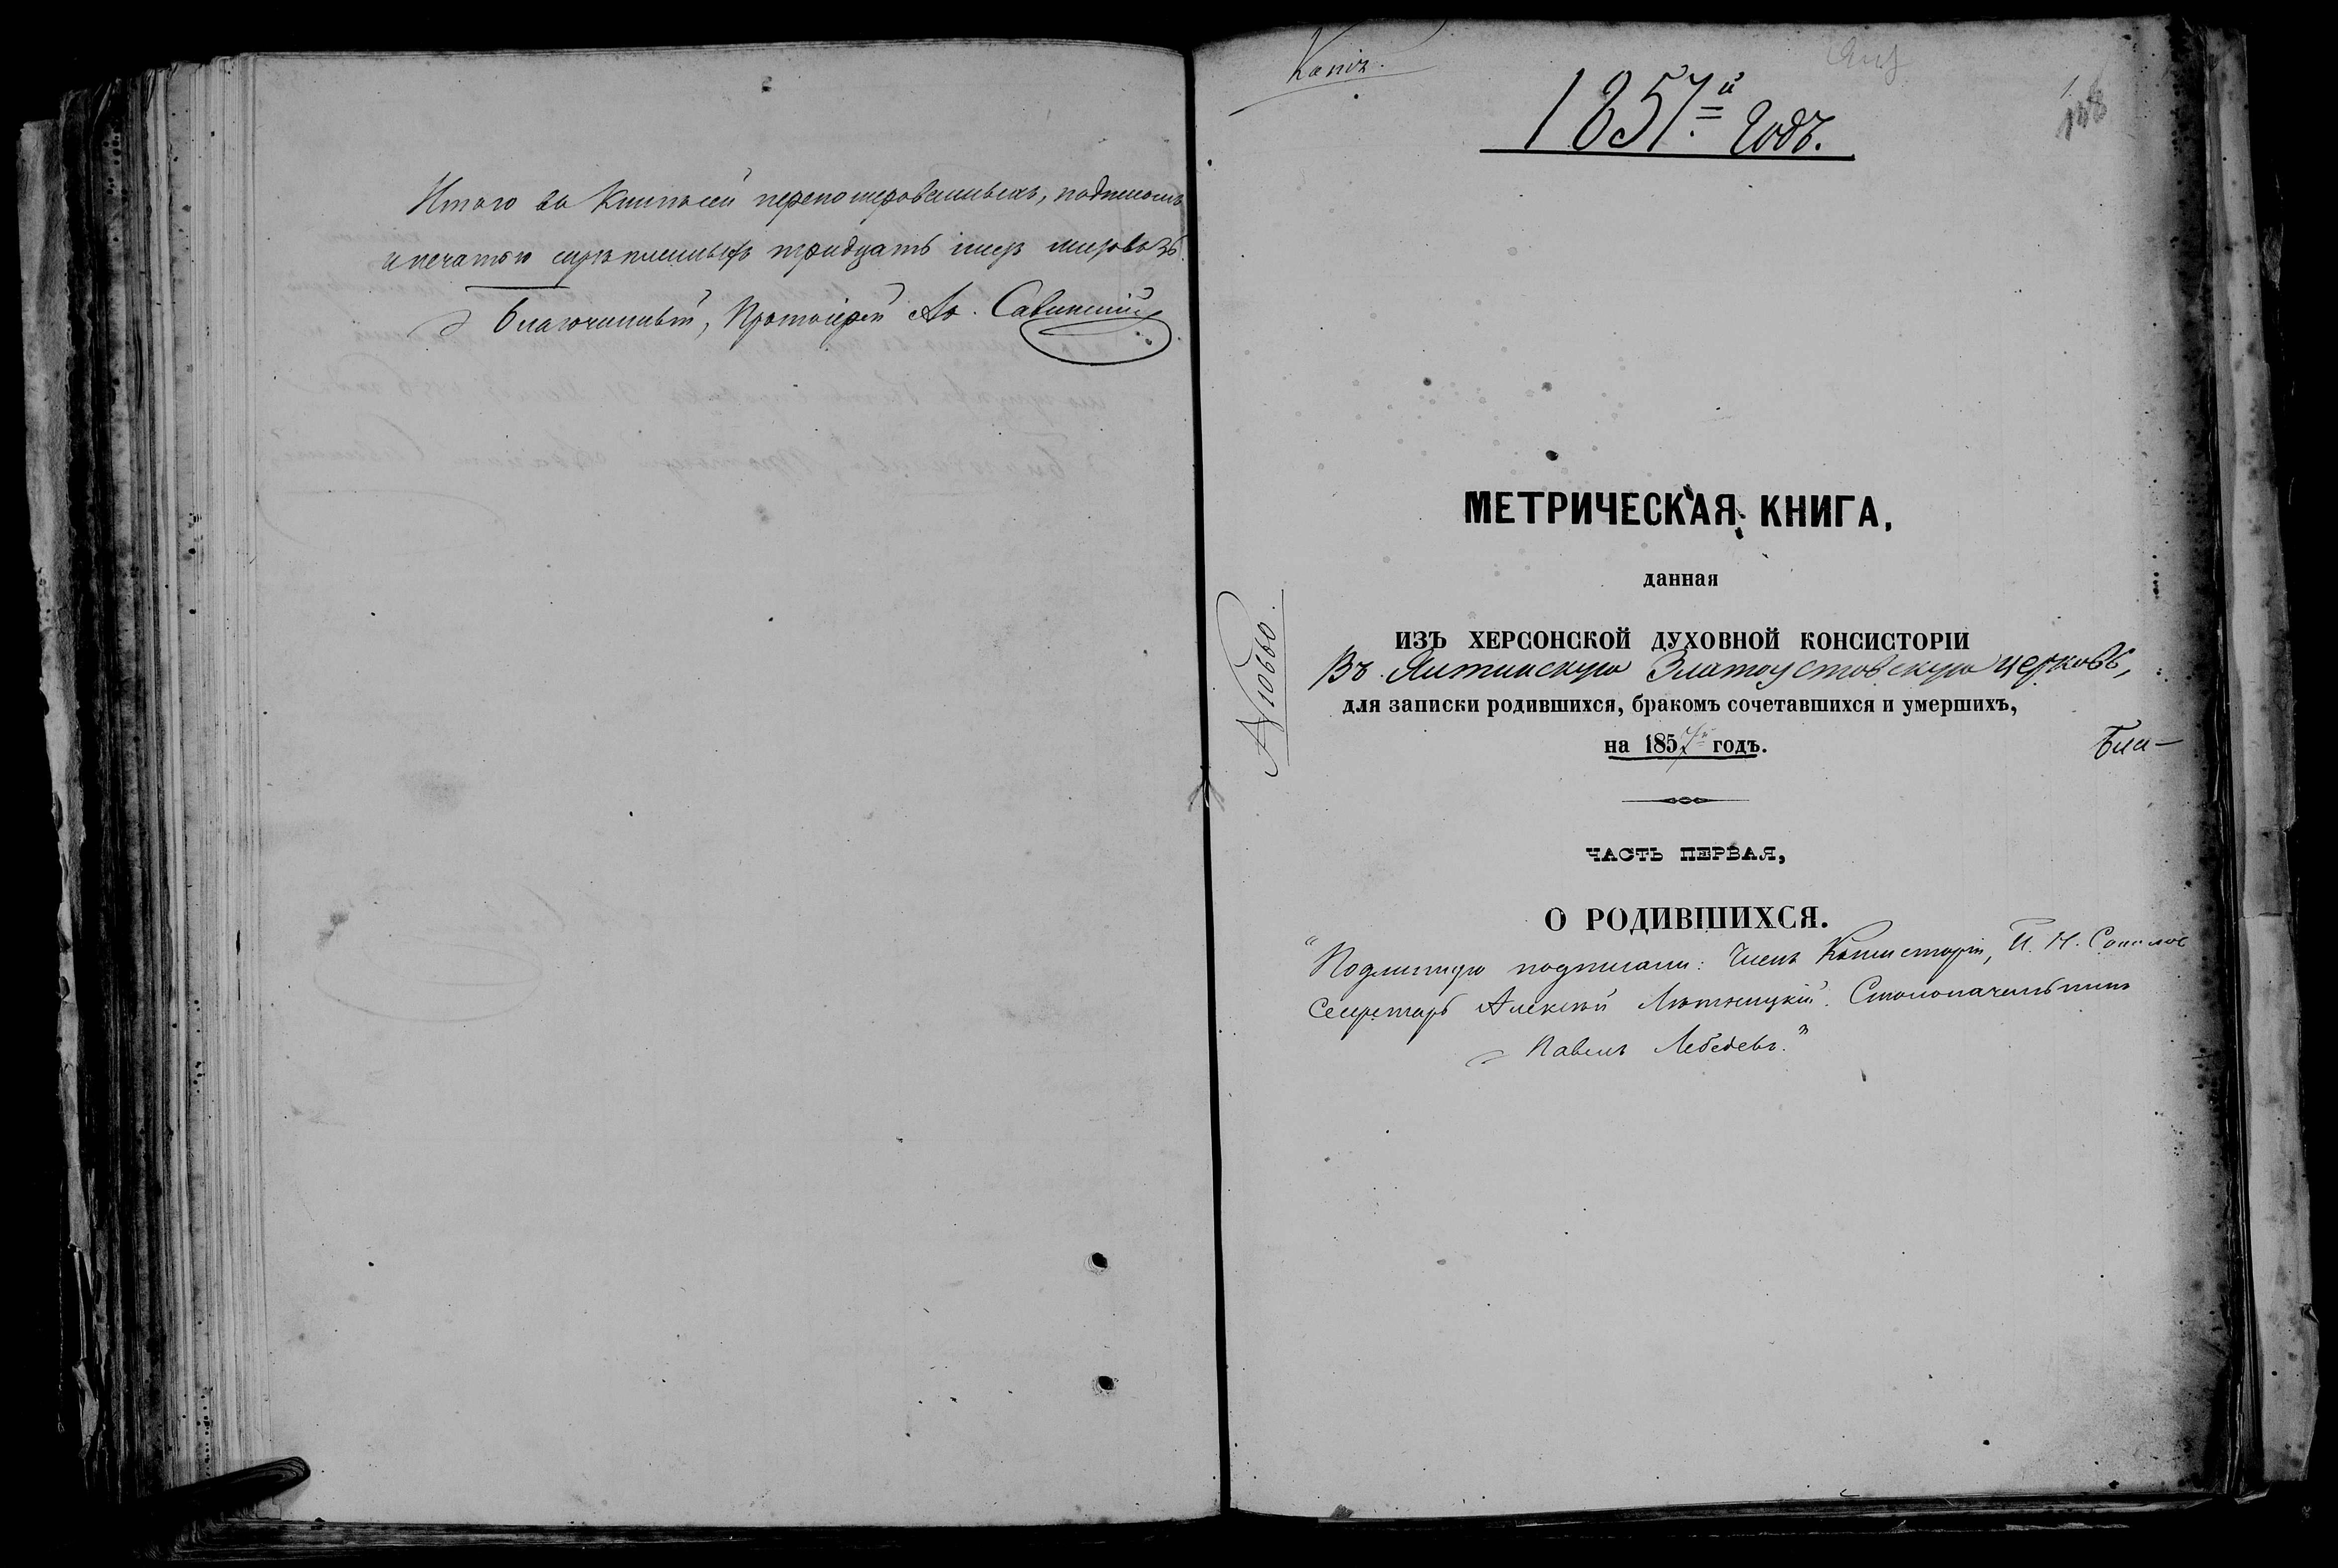 Итого въ Книгѣ сей перепомерованныхъ, подписомъ
и печатью скрѣпленныхъ тридцать шесть листовъ 36.
Благочинный, Протоіерей Ао. Савинскій
Копія.
1857й годъ.
МЕТРИЧЕСКАЯ КНИГА,
данная
ИЗЪ ХЕРСОНСКОЙ ДУХОВНОЙ КОНСИСТОРІИ
Въ Ялтинскую Златоустовскую церковь,
для записки родившихся, бракомъ сочетавшихся и умершихъ,
на 1857й годъ.
Бла-
ЧАСТЬ ПЕРВАЯ,
О РОДИВШИХСЯ.
"Подлинную подписали: Членъ Консисторіи,
Секретарь Алексѣй Столоначальникъ
Павелъ Лебедевъ."